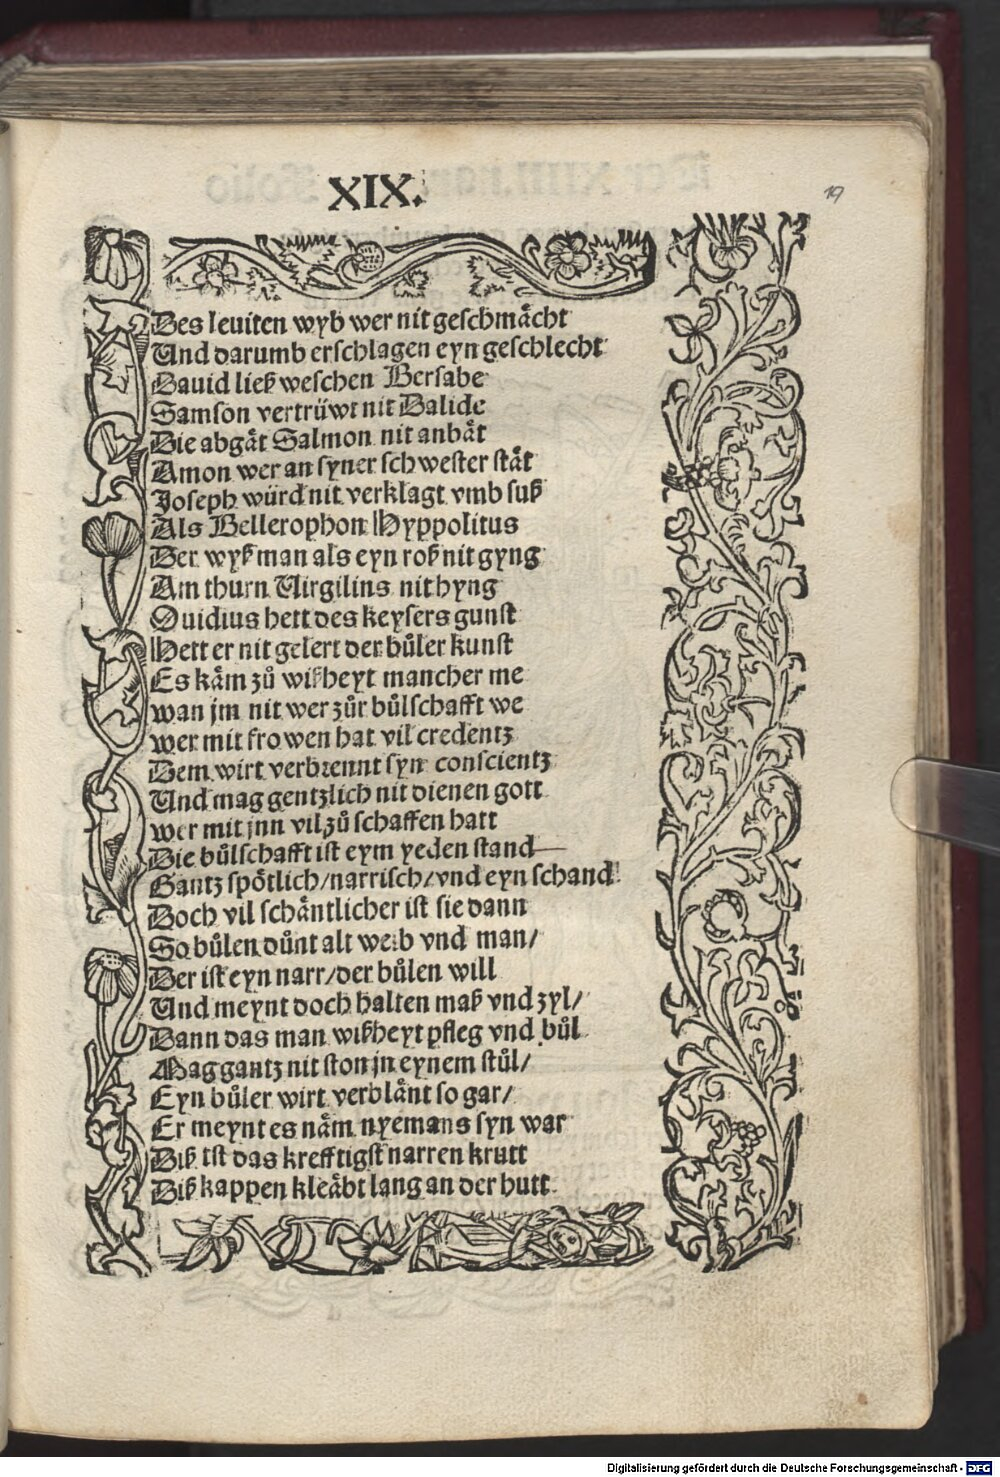 XIX.
19
Des leuiten wyb wer nit geschmächt
Und darumb erschlagen eyn geschlecht
Dauid ließ weschen Bersabe
Samson vertrüwt nit Dalide
Die abgät Salmon nit anbät
Amon wer an syner schwester stät
Joseph würd nit verklagt vmb suß
Als Bellerophon Hyppolitus
Der wyß man als eyn roß nit gyng
Am thurn Uirgilius nit hyng
Ouidius hett des keysers gunst
Hett er nit gelert der bůler kunst
Es käm zů wißheyt mancher me
wan jm nit wer zůr bůlschafft we
wer mit frowen hat vil credentz
Dem wirt verbrennt syn conscientz
Und mag gentzlich nit dienen gott
wer mit jnn vil zů schaffen hatt
Die bůlschafft ist eym yeden stand
Gantz spötlich/narrisch/vnd eyn schand
Doch vil schäntlicher ist sie dann
So bůlen důnt alt weib vnd man/
Der ist eyn narr/der bůlen will
Und meynt doch halten maß vnd zyl/
Dann das man wißheyt pfleg vnd bůl
Mag gantz nit ston jn eynem stůl/
Eyn bůler wirt verblänt so gar/
Er meynt es näm nyemans syn war
Diß ist das krefftigst narren krutt
Diß kappen kleäbt lang an der hutt
Digitalisierung gefördert durch die Deutsche Forschungsgemeinschaft - DFG